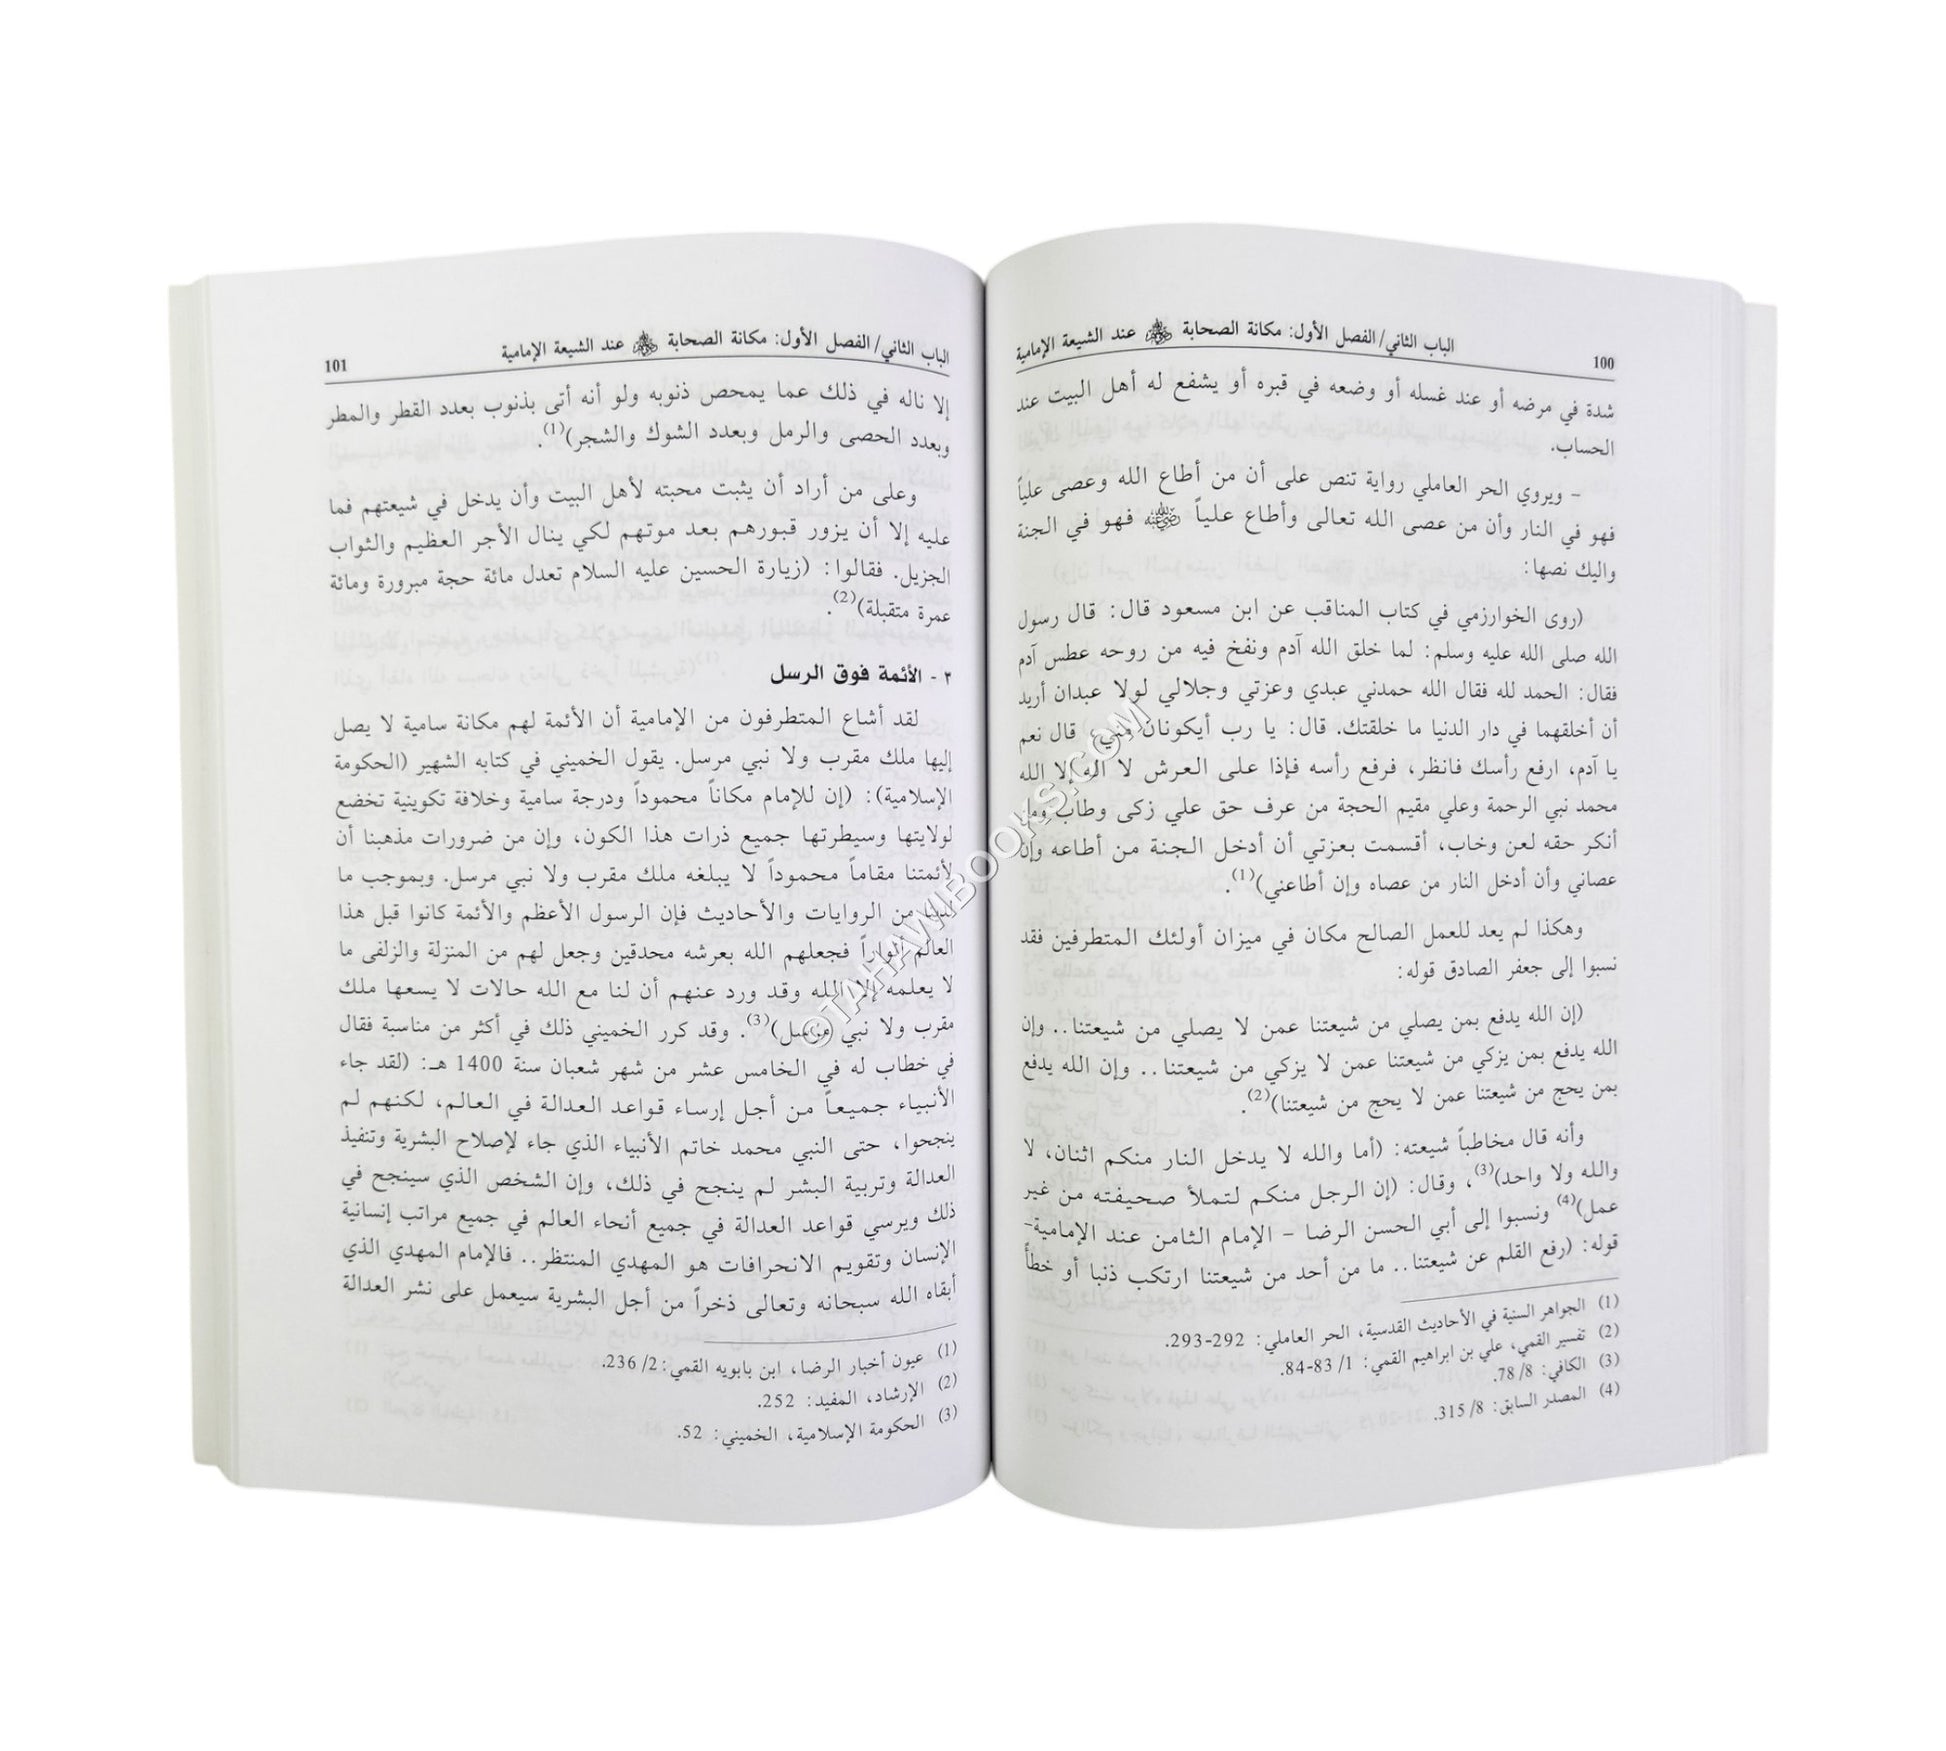 100
الباب الثاني/الفصل الأول: مكانة الصحابة ﷺ عند الشيعة الإمامية
شدة في مرضه أو عند غسله أو وضعه في قبره أو يشفع له أهل البيت عند
الحساب.
- ويروي الحر العاملي رواية تنص على أن من أطاع الله وعصى علياً
فهو في النار وأن من عصى الله تعالى وأطاع علياً فهو في الجنة
واليك نصها:
(روى الخوارزمي في كتاب المناقب عن ابن مسعود قال: قال رسول
الله صلى الله عليه وسلم: لما خلق الله آدم ونفخ فيه من روحه عطس آدم
فقال: الحمد لله فقال الله حمدني عبدي وعزتي وجلالي لولا عبدان أريد
أن أخلقهما في دار الدنيا ما خلقتك. قال: يا رب أيكونان مني، قال نعم
يا آدم، ارفع رأسك فانظر، فرفع رأسه فإذا على العرش لا اله إلا الله
محمد نبي الرحمة وعلي مقيم الحجة من عرف حق علي زكى وطاب ومن
أنكر حقه لعن وخاب، أقسمت بعزتي أن أدخل الجنة من أطاعه وإن
عصاني وأن أدخل النار من عصاه وإن أطاعني)(1).
وهكذا لم يعد للعمل الصالح مكان في ميزان أولئك المتطرفين فقد
نسبوا إلى جعفر الصادق قوله:
(إن الله يدفع بمن يصلي من شيعتنا عمن لا يصلي من شيعتنا.. وإن
الله يدفع بمن يزكي من شيعتنا عمن لا يزكي من شيعتنا.. وإن الله يدفع
بمن يحج من شيعتنا عمن لا يحج من شيعتنا)(2).
وأنه قال مخاطباً شيعته: (أما والله لا يدخل النار منكم اثنان، لا
والله ولا واحد)(3)، وقال: (إن الرجل منكم لتملأ صحيفته من غير
عمل)(4) ونسبوا إلى أبي الحسن الرضا - الإمام الثامن عند الإمامية-
قوله: (رفع القلم عن شيعتنا.. ما من أحد من شيعتنا ارتكب ذنبا أو خطأً
(1) الجواهر السنية في الأحاديث القدسية، الحر العاملي: 292-293.
(2) تفسير القمي، علي بن ابراهيم القمي: 1/ 83-84.
(3) الكافي: 8/ 78.
(4) المصدر السابق: 8/ 315.
الباب الثاني/الفصل الأول: مكانة الصحابة عند الشيعة الإمامية
101
إلا ناله في ذلك عما يمحص ذنوبه ولو أنه أتى بذنوب بعدد القطر والمطر
وبعدد الحصى والرمل وبعدد الشوك والشجر)(1).
وعلى من أراد أن يثبت محبته لأهل البيت وأن يدخل في شيعتهم فما
عليه إلا أن يزور قبورهم بعد موتهم لكي ينال الأجر العظيم والثواب
الجزيل. فقالوا: (زيارة الحسين عليه السلام تعدل مائة حجة مبرورة ومائة
عمرة متقبلة)(2).
٢ - الأئمة فوق الرسل
لقد أشاع المتطرفون من الإمامية أن الأئمة لهم مكانة سامية لا يصل
إليها ملك مقرب ولا نبي مرسل. يقول الخميني في كتابه الشهير (الحكومة
الإسلامية): (إن للإمام مكاناً محموداً ودرجة سامية وخلافة تكوينية تخضع
لولايتها وسيطرتها جميع ذرات هذا الكون، وإن من ضرورات مذهبنا أن
لأئمتنا مقاماً محموداً لا يبلغه ملك مقرب ولا نبي مرسل. وبموجب ما
لدينا من الروايات والأحاديث فإن الرسول الأعظم والأئمة كانوا قبل هذا
العالم أنواراً فجعلهم الله بعرشه محدقين وجعل لهم من المنزلة والزلفى ما
لا يعلمه إلا الله وقد ورد عنهم أن لنا مع الله حالات لا يسعها ملك
مقرب ولا نبي مرسل)(3). وقد كرر الخميني ذلك في أكثر من مناسبة فقال
في خطاب له في الخامس عشر من شهر شعبان سنة 1400 هـ: (لقد جاء
الأنبياء جميعاً من أجل إرساء قواعد العدالة في العالم، لكنهم لم
ينجحوا، حتى النبي محمد خاتم الأنبياء الذي جاء لإصلاح البشرية وتنفيذ
العدالة وتربية البشر لم ينجح في ذلك، وإن الشخص الذي سينجح في
ذلك ويرسي قواعد العدالة في جميع أنحاء العالم في جميع مراتب إنسانية
الإنسان وتقويم الانحرافات هو المهدي المنتظر.. فالإمام المهدي الذي
أبقاه الله سبحانه وتعالى ذخراً من أجل البشرية سيعمل على نشر العدالة
(1) عيون أخبار الرضا، ابن بابويه القمي: 2/ 236.
(2) الإرشاد، المفيد: 252.
(3) الحكومة الإسلامية، الخميني: 52.
©TAHAWIBOOKS.COM